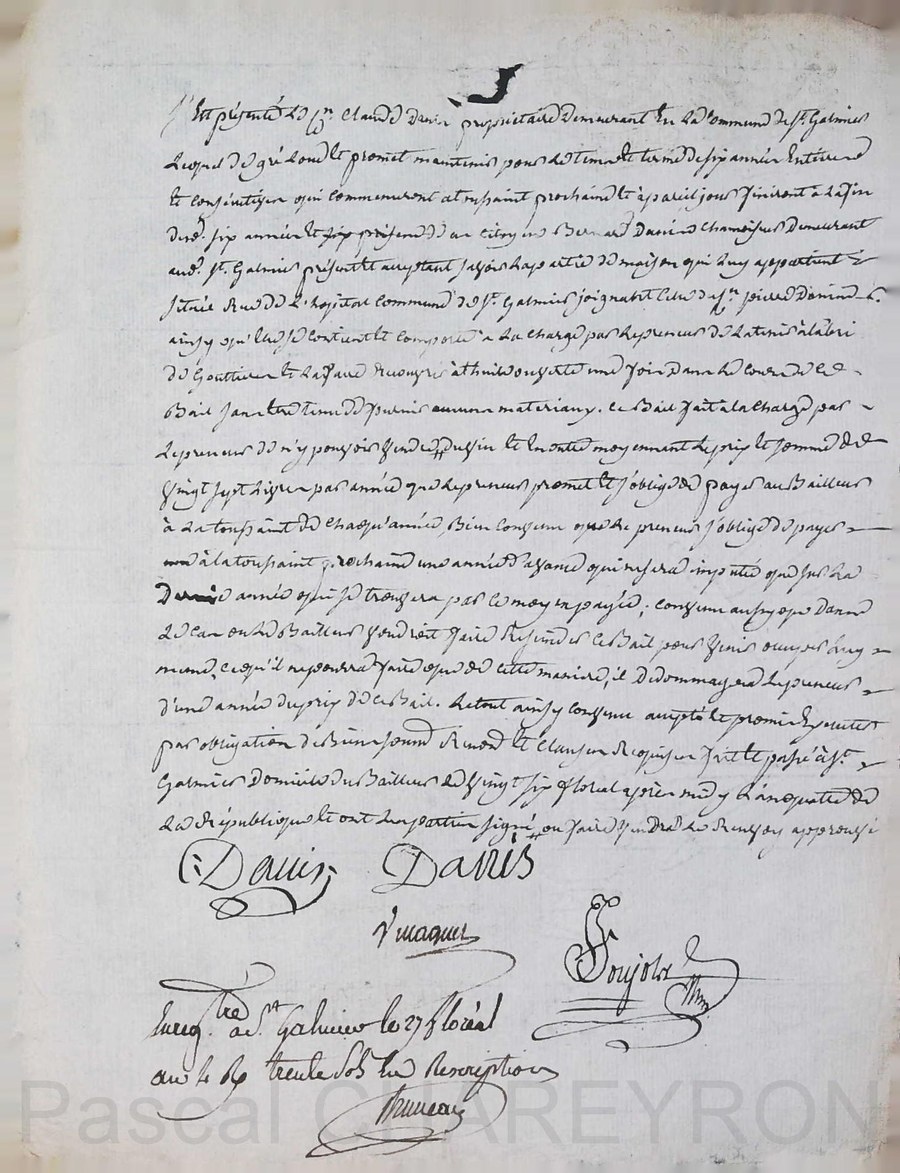 Est présenté le cn. Claude Davin propriétaire demeurant en la commune de st. Galmier
Lequel de gré loue et promet maintenir pour le tems et terme de six année entiere
et consécutive qui commenceront a toussaint prochaine et à pareil jour finiront à la fin
desd. six année au citoyen Bernard Davin chamoiseur demeurant
aud. st. Galmier présent et acceptant savoir la partie de maison qui luy appartient
située rue de l'hopital commune de st. Galmier joignant celle de cn. pierre Davin
ainsy qu'elle se contient et comporte a la charge par le preneur de la tenir à l'abri
de gouttiere et la faire recouvrir à thuile ouverte une fois dans le cours de ce
Bail sans être tenu de fournir aucun materiaux. ce Bail fait à la charge par
le preneur de n'y pouvoir vendre et moyennant le prix et somme de
vingt sept livre par année que le preneur promet et s'oblige de payer au Bailleur
à la toussaint de chaqu'année, Bien convenu que le preneur s'oblige de payer
à la toussaint prochaine une année d'avance qui ne sera imputée que sur la
Derniere année qui se trouvera par ce moyen payée ; convenu aussy que dans
le cas ou le Bailleur voudroit faire resindre ce Bail pour venir occuper luy
meme, ce qu'il ne pourra faire que de cette maniere, il dedommagera le preneur
d'une année du prix de ce Bail. Le tout ainsy convenu accepté et promis executer
par obligation de Bien soumis renoncé et clauses requises fait et passé à st.
Galmier Domicile du Bailleur le vingt six floréal après midy l'an quatre de
la République et ont les parties signé, ou faire vendre le renvoy approuvé
Davin Davin
Vmagnet
Poujolat
Enregtré. a st Galmier le 27 floréal
an 4 R trente sols en Rescription
Bruneau
Pascal CHAREYRON